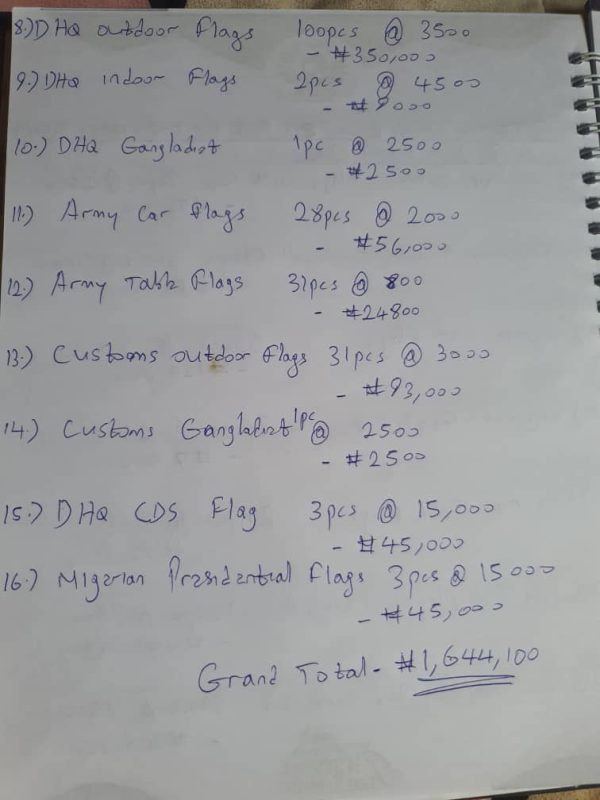 8.) DHQ outdoor Flags 100pcs @ 3500
- ₦350,000
9.) DHQ indoor Flags 2pcs @ 4500
- ₦9000
10.) DHQ Gangladist 1pc @ 2500
- ₦2500
11.) Army Car Flags 28pcs @ 2000
- ₦56,000
12.) Army Table Flags 31pcs @ 800
- ₦24800
13.) Customs outdoor Flags 31pcs @ 3000
- ₦93,000
14.) Customs Gangladist 1pc @ 2500
- ₦2500
15.) DHQ CDS Flag 3pcs @ 15,000
- ₦45,000
16.) Nigerian Presidential Flags 3pcs @ 15000
- ₦45,000
Grand Total - ₦1,644,100